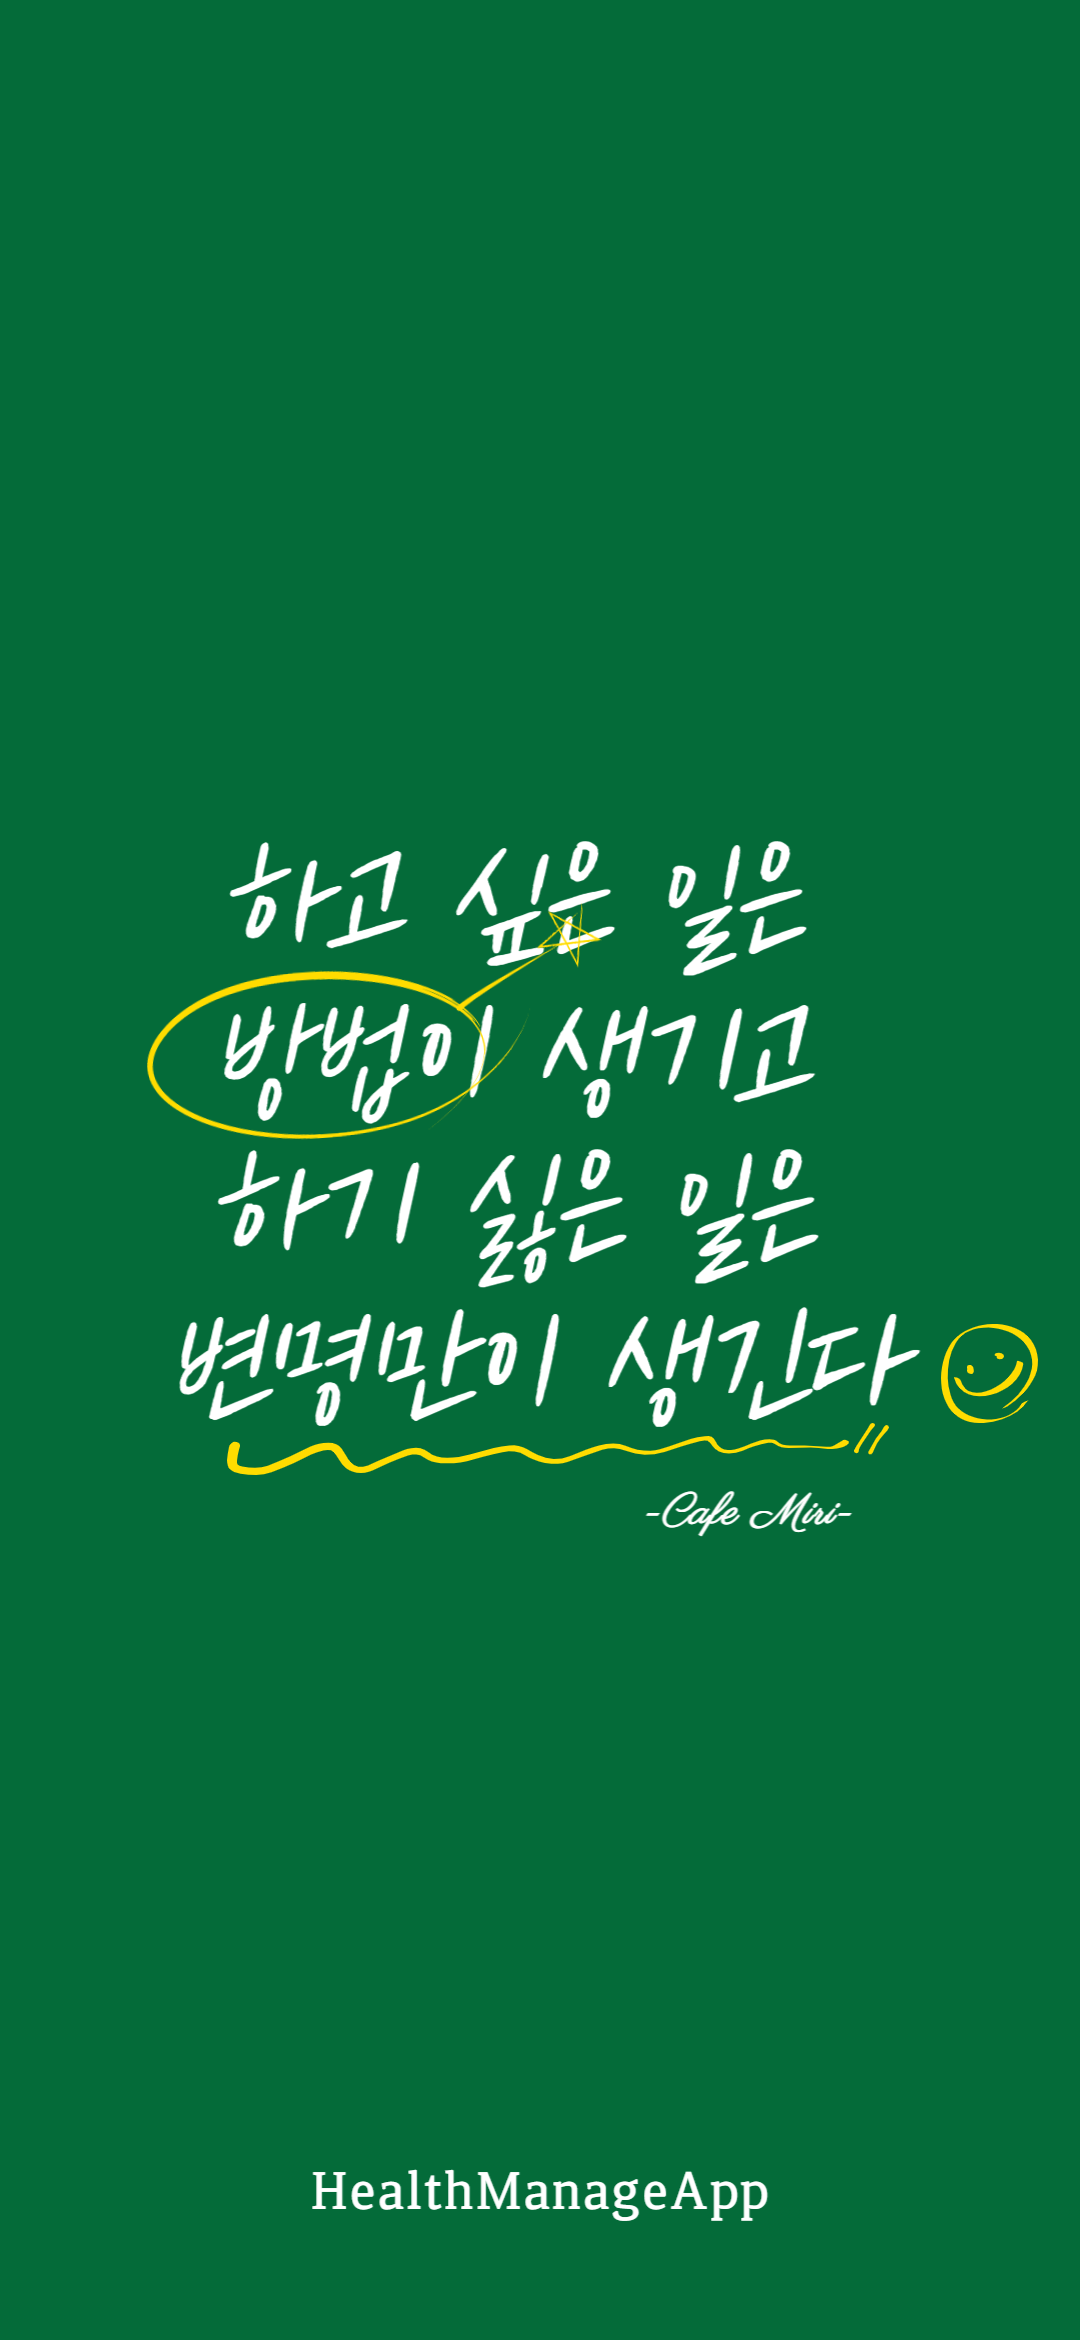 하고 싶은 일은
방법이 생기고
하기 싫은 일은
변명만이 생긴다
-Cafe Miri-
HealthManageApp